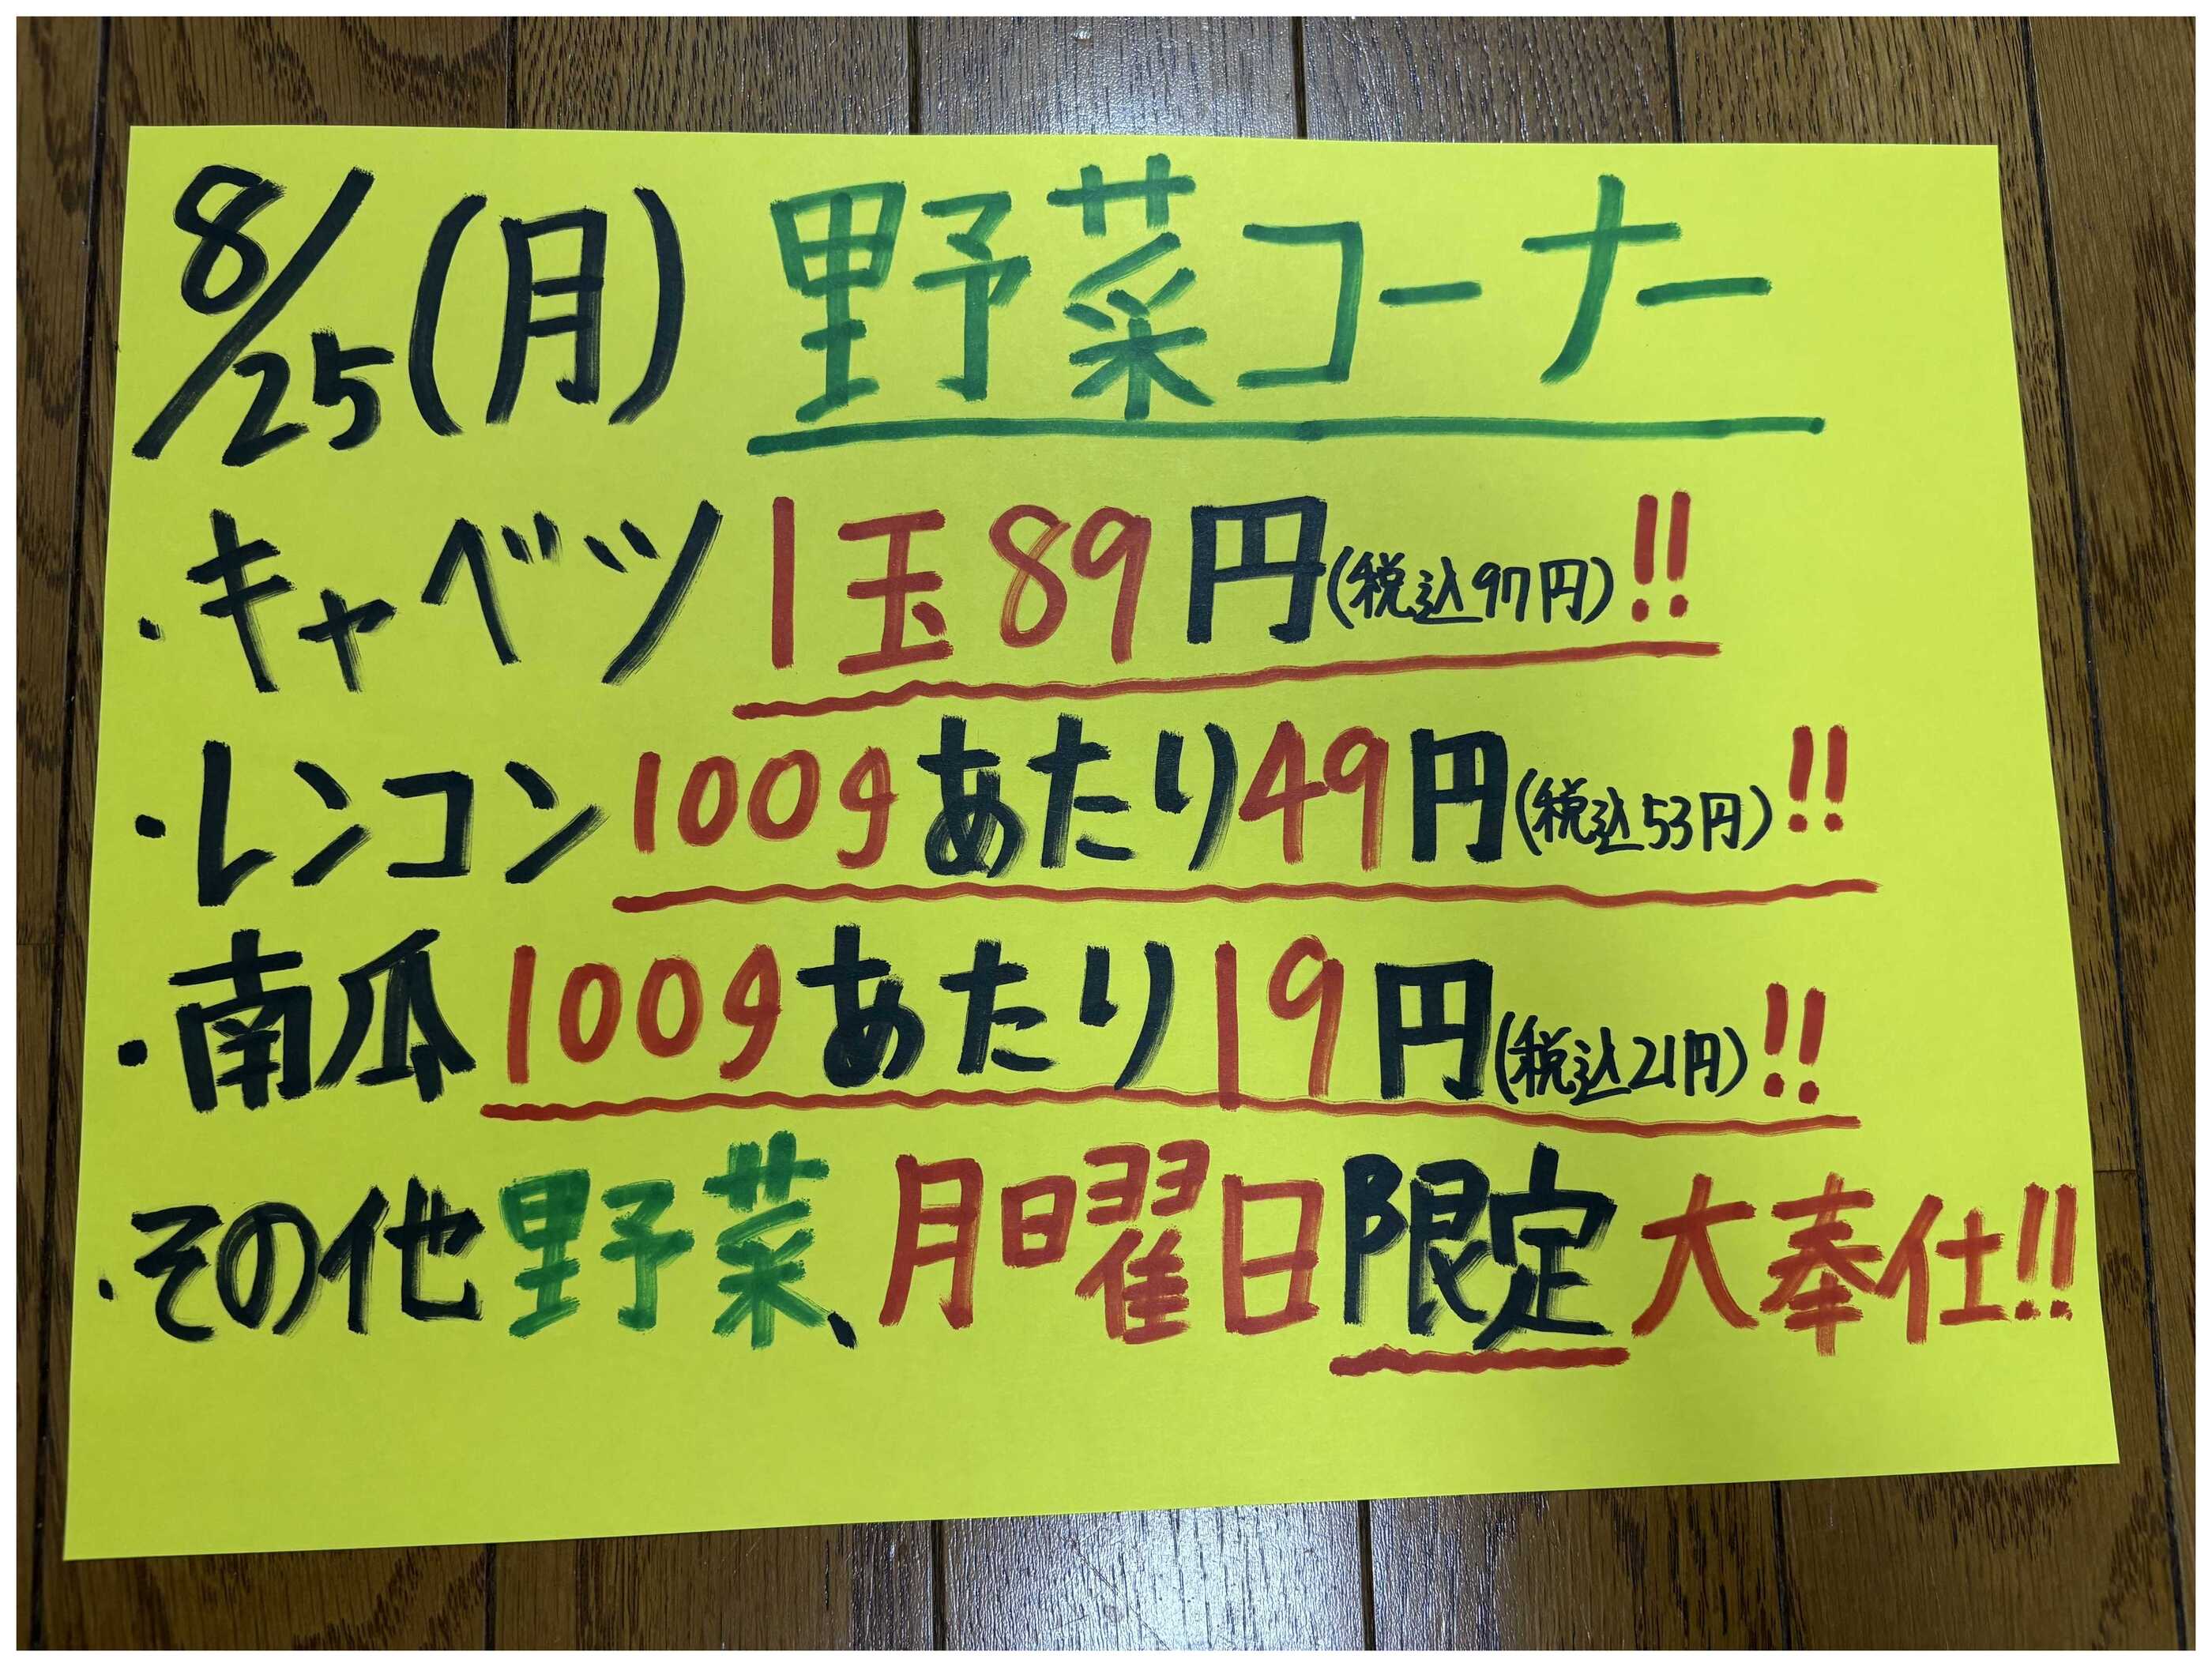 8/25(月) 野菜コーナー
・キャベツ 1玉89円(税込97円)!!
・レンコン100gあたり49円(税込53円)!!
・南瓜100gあたり19円(税込21円)!!
・その他野菜、月曜日限定大奉仕!!